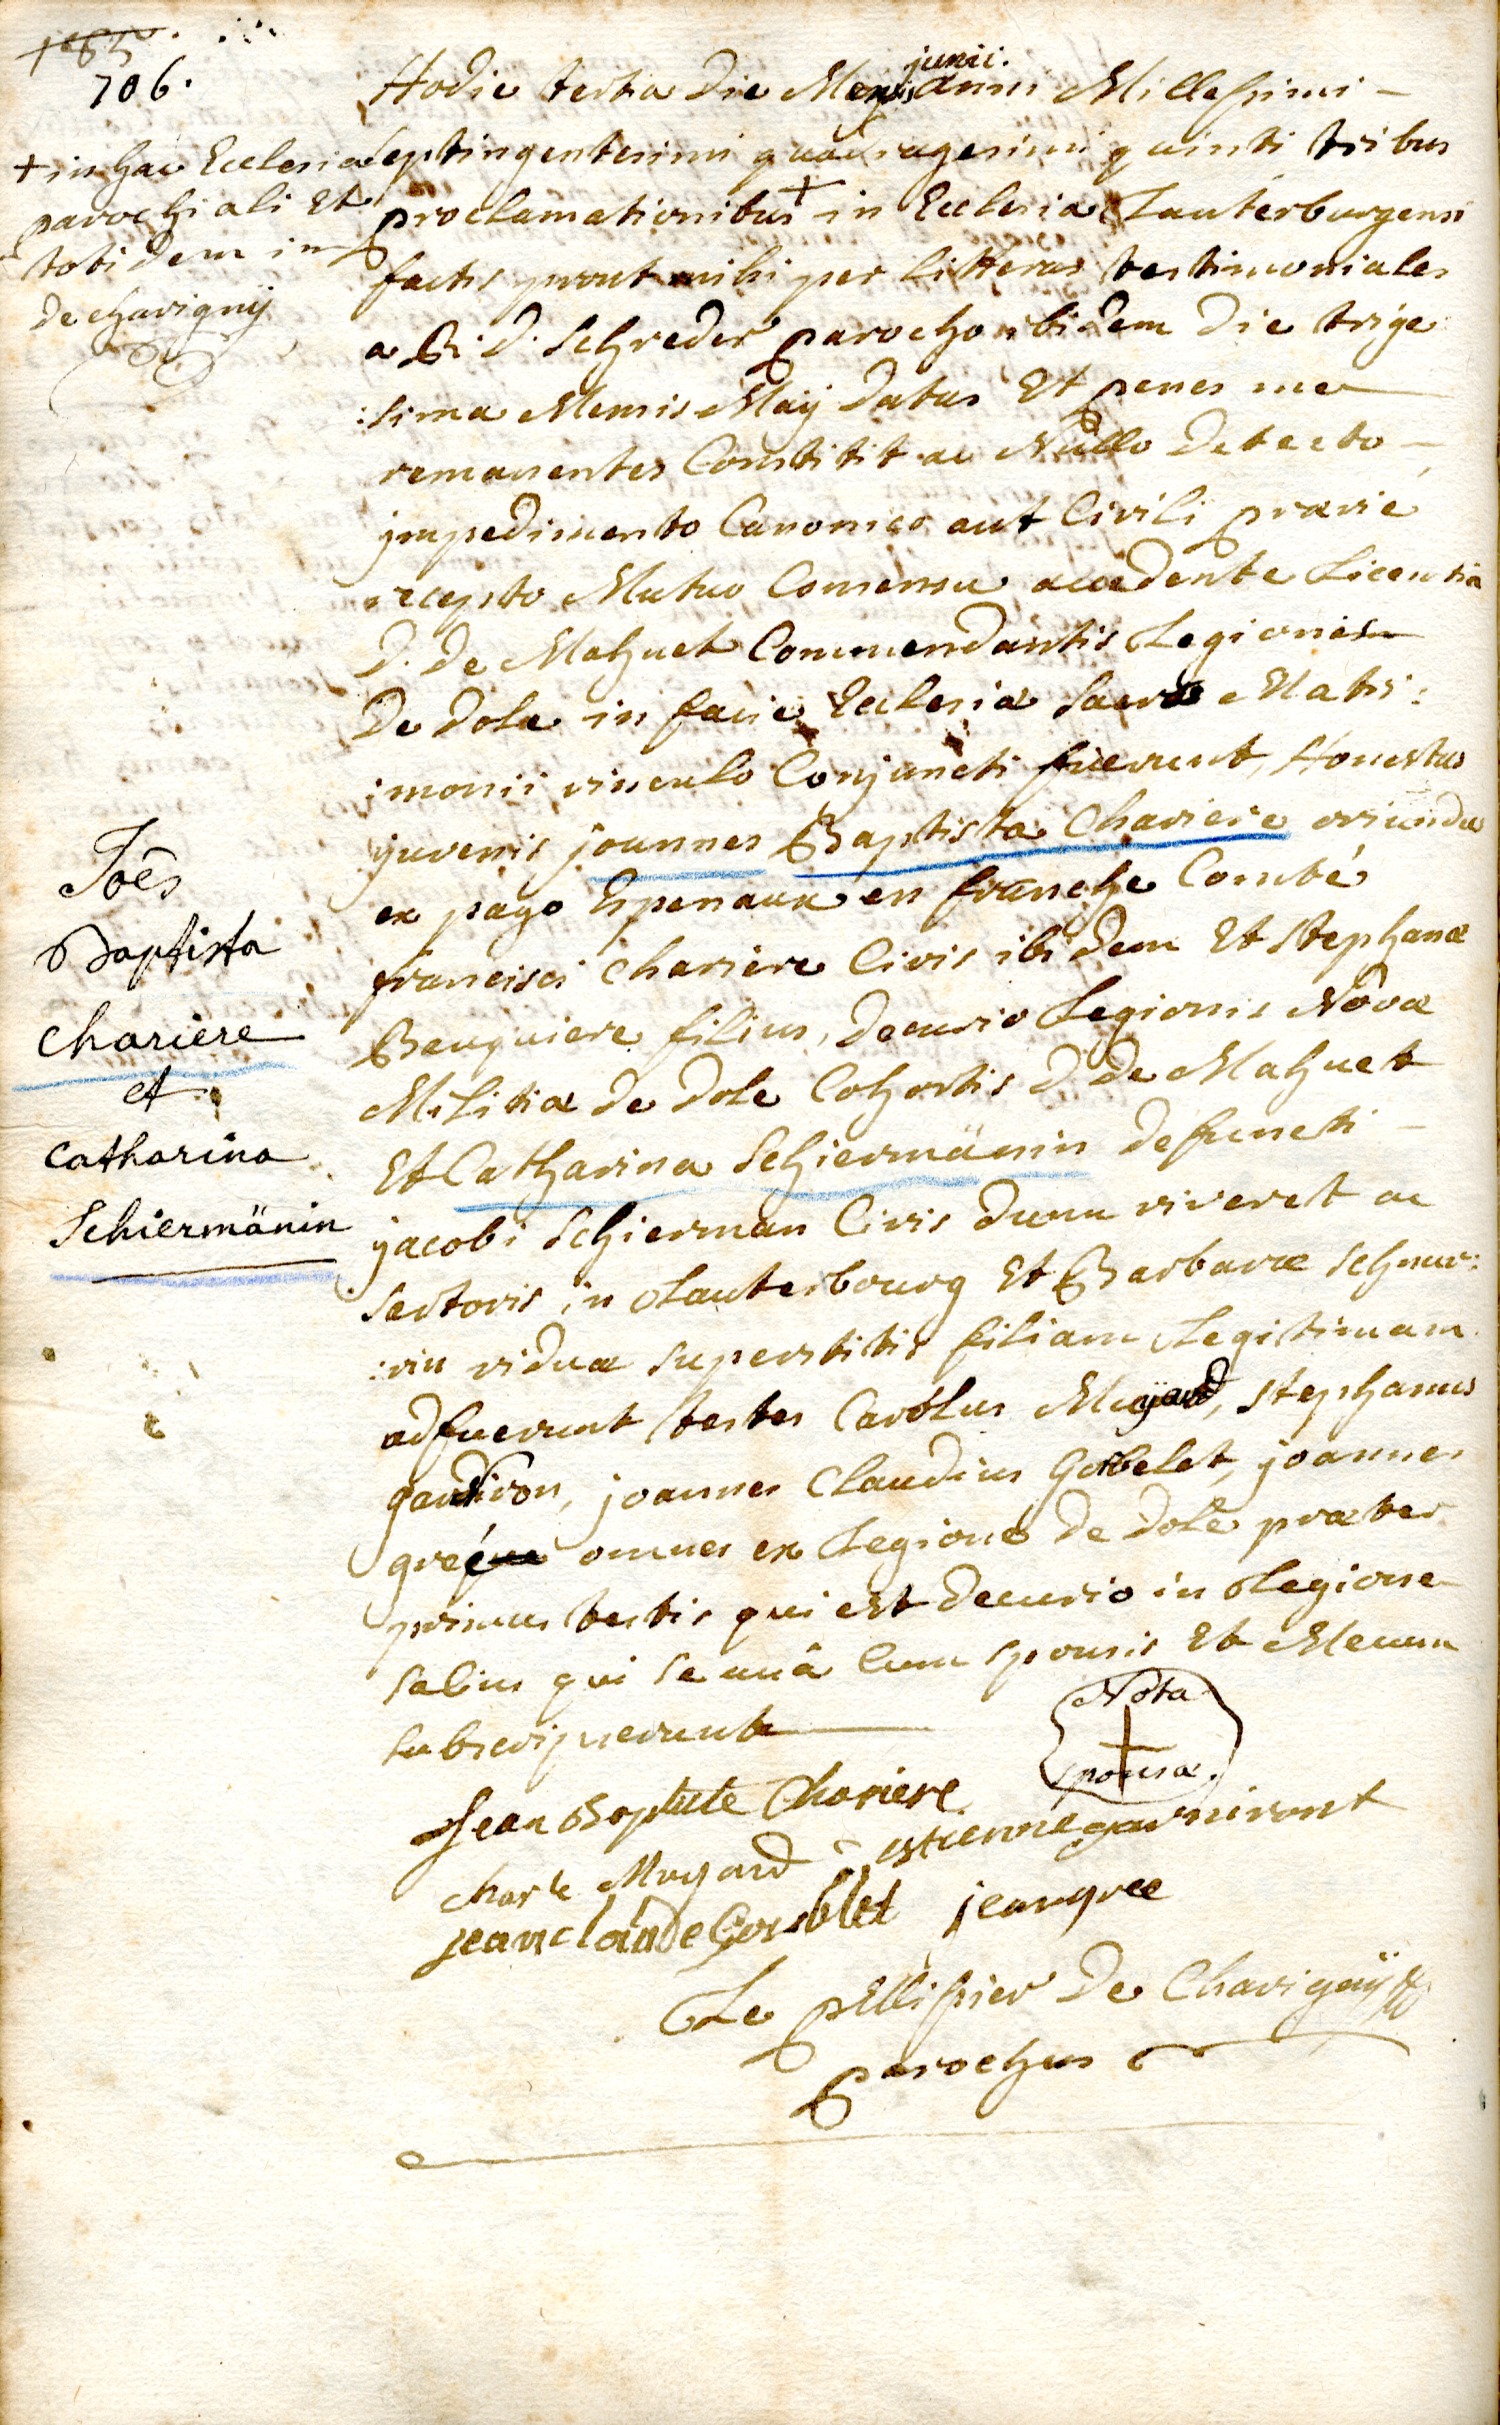 706.
junii.
Hodie tertia die Mensis anni Millessimi —
septingentesimi quadragesimi quinti tribus
proclamationibus + in Ecclesia Lauterburgensi
factis prout mihi per litteras testimoniales
a R. D. Schreder parocho ibidem die trige
:sima Mensis Maij datas Et penes me
remanentes Constitit ac Nullo detecto —
jmpedimento Canonico aut Civili prævie
recepto Mutuo Consensu accedente Licentia
D. de Mahuet Commendantis Legionis
De Dole in facie Ecclesiæ Sacro Matri:
:monii vinculo Conjuncti fuerunt, Honestus
juvenis joannes Baptista Chariere oriundus
ex pago Epenaux en franche Comté
francisci Chariere Civis ibidem Et Stephanæ
Beuquiere filius, decurio Legionis Novæ
Militiæ de Dole Cohortis D. de Mahuet
Et Catharina Schiermänin defuncti —
jacobi Schierman Civis dum viveret ac
sartoris in Lauterbourg Et Barbaræ Schnur:
:rin viduæ superstitis filiam Legitimam
adfuerunt testes Carolus Mugard, Stephanus
garniron, joannes Claudius Gorbelet, joannes
grée omnes ex Legione de Dole præter
primus testis qui est decurio in Legione
Salins qui se unâ Cum sponsis Et Mecum
subscripserunt
+ in hac Ecclesia
parochiali Et
totidem in
de chavigny
Joês
Baptista
Chariere
et
Catharina
Schiermänin
Nota
+
sponsæ.
Jean Baptiste Chariere
Charle Mugard estienne garniront
jean claude Gorsblet jean gree
Le pellissier De Chavignÿ
parochus